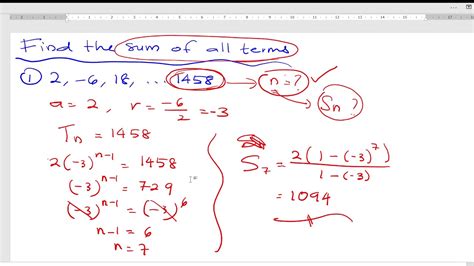 Find the sum of all terms
① 2, -6, 18, ... 1458 → n=? ✓
Sn ?
a = 2 , r = -6/2 = -3
Tn = 1458
2(-3)^(n-1) = 1458
(-3)^(n-1) = 729
(-3)^(n-1) = (-3)^6
n-1 = 6
n = 7
S7 = 2(1-(-3)^7)/(1-(-3))
= 1094